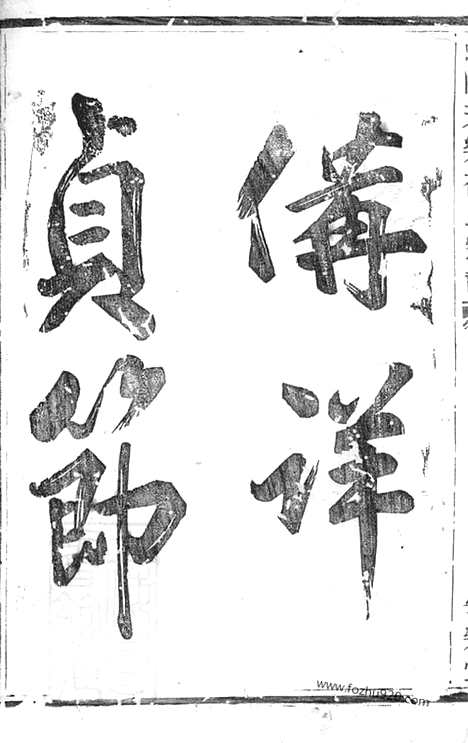 備詳
貞節
www.fozhu920.com